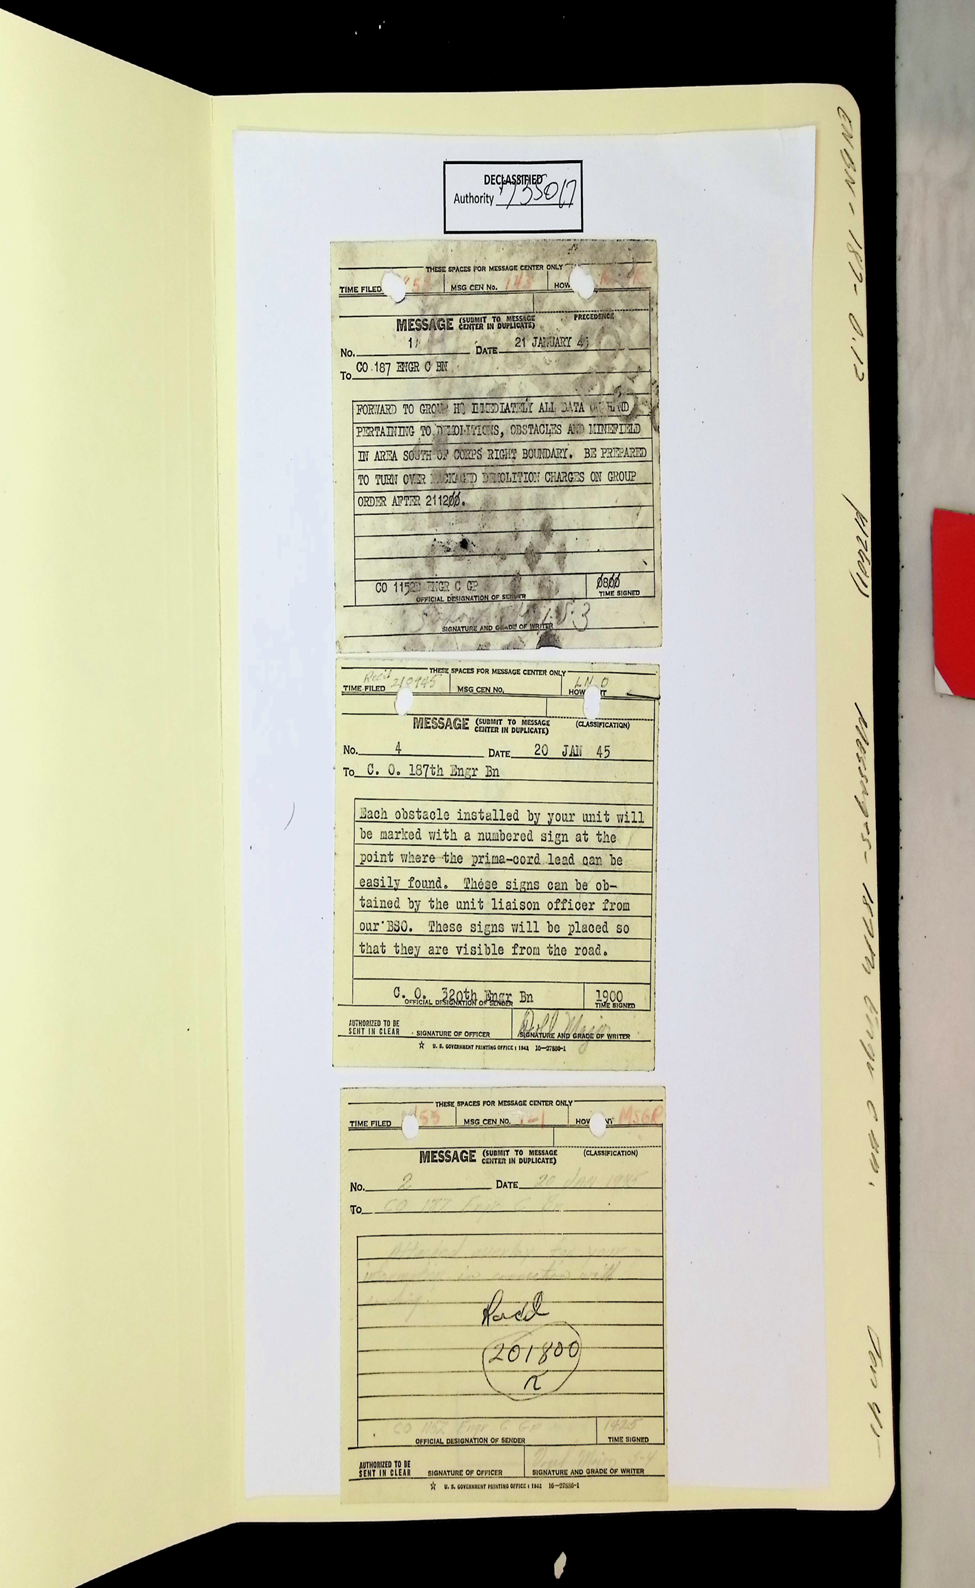 DECLASSIFIED
Authority 735017
THESE SPACES FOR MESSAGE CENTER ONLY
TIME FILED MSG CEN No. HOW
MESSAGE (SUBMIT TO MESSAGE CENTER IN DUPLICATE) PRECEDENCE
No. 1 DATE 21 JANUARY 45
To CO 187 ENGR C BN
FORWARD TO GROUP HQ IMMEDIATELY ALL DATA ON HAND
PERTAINING TO DEMOLITIONS, OBSTACLES AND MINEFIELD
IN AREA SOUTH OF CORPS RIGHT BOUNDARY. BE PREPARED
TO TURN OVER PACKAGED DEMOLITION CHARGES ON GROUP
ORDER AFTER 211200.
CO 1152D ENGR C GP 0800
OFFICIAL DESIGNATION OF SENDER TIME SIGNED
SIGNATURE AND GRADE OF WRITER
THESE SPACES FOR MESSAGE CENTER ONLY
Recd 210945 LN O
TIME FILED MSG CEN NO. HOW SENT
MESSAGE (SUBMIT TO MESSAGE CENTER IN DUPLICATE) (CLASSIFICATION)
No. 4 DATE 20 JAN 45
To C. O. 187th Engr Bn
Each obstacle installed by your unit will
be marked with a numbered sign at the
point where the prima-cord lead can be
easily found. These signs can be ob-
tained by the unit liaison officer from
our BSO. These signs will be placed so
that they are visible from the road.
C. O. 320th Engr Bn 1900
OFFICIAL DESIGNATION OF SENDER TIME SIGNED
Major
AUTHORIZED TO BE SENT IN CLEAR SIGNATURE OF OFFICER SIGNATURE AND GRADE OF WRITER
☆ U. S. GOVERNMENT PRINTING OFFICE : 1942 16-27880-1
THESE SPACES FOR MESSAGE CENTER ONLY
TIME FILED MSG CEN NO. HOW SENT MSGR
MESSAGE (SUBMIT TO MESSAGE CENTER IN DUPLICATE) (CLASSIFICATION)
No. 2 DATE 20 Jan 1945
To CO 187 Engr C Bn
Attached overlay for your
information in connection with
Recd
201800
CO 1152 Engr C Gp 1425
OFFICIAL DESIGNATION OF SENDER TIME SIGNED
Major S-4
AUTHORIZED TO BE SENT IN CLEAR SIGNATURE OF OFFICER SIGNATURE AND GRADE OF WRITER
☆ U. S. GOVERNMENT PRINTING OFFICE : 1942 16-27880-1
ENBN-187-0.12
Messages-187th Engr C Bn,
Jan 45